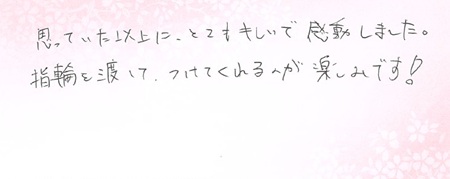 思っていた以上に、とてもキレイで感動しました。
指輪を渡して、つけてくれるのが楽しみです!